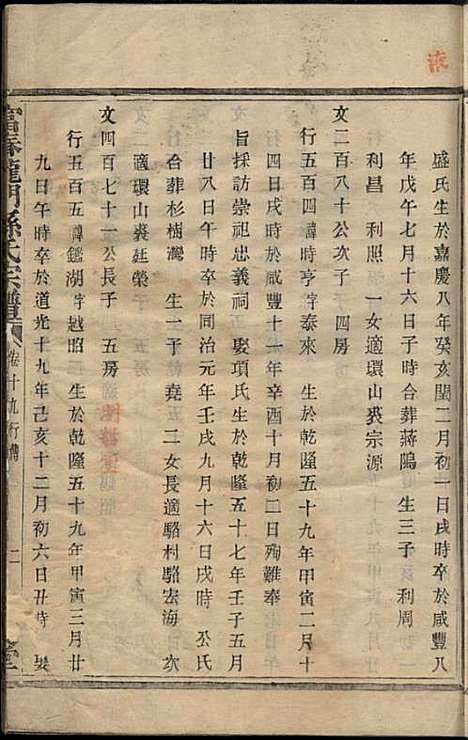 盛氏生於嘉慶八年癸亥閏二月初一日戌時卒於咸豐八
年戊午七月十六日子時合葬蔣鳴 生三子 利周
利昌 利照 一女適環山裘宗源
文二百八十公次子 四房
行五百四諱時亨字泰來 生於乾隆五十九年甲寅二月十
四日戌時於咸豐十一年辛酉十月初二日殉難奉
旨採訪崇祖忠義祠 娶項氏生於乾隆五十七年壬子五月
廿八日午時卒於同治元年壬戌九月十六日戌時 公氏
合葬杉樹灣 生一子 堯五 二女長適駱村駱宏海 次
適環山裘廷榮
文四百七十一公長子 五房
行五百五諱鑑湖字越昭 生於乾隆五十九年甲寅三月廿
九日午時卒於道光十九年己亥十二月初六日丑時 娶
富春龍門孫氏宗譜 卷十九行傳 二 堂